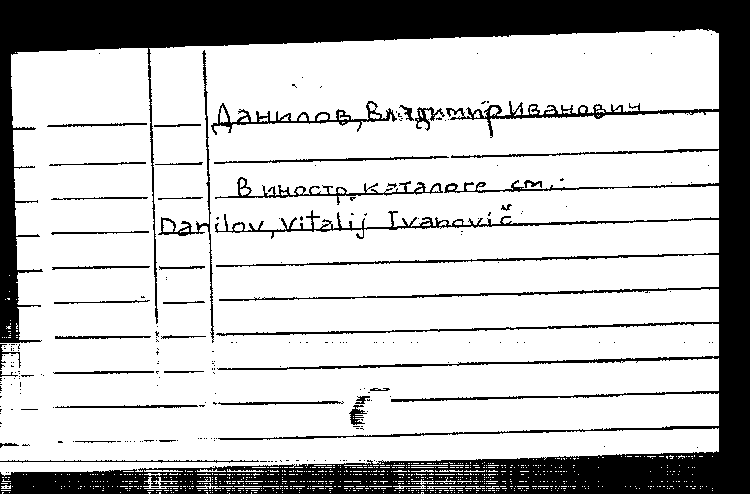 Данилов, Владимир Иванович
В иностр. каталоге см.:
Danilov, Vitalij Ivanovič